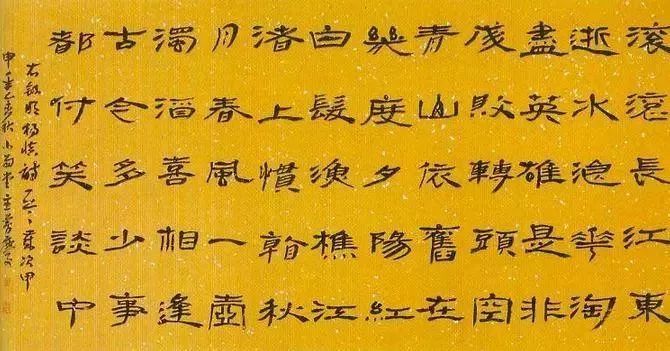 滾滾長江東
逝水浪花淘
盡英雄是非
成敗轉頭空
青山依舊在
幾度夕陽紅
白髮漁樵江
渚上慣看秋
月春風一壺
濁酒喜相逢
古今多少事
都付笑談中
右錄明楊慎詩歲次甲
申年秋